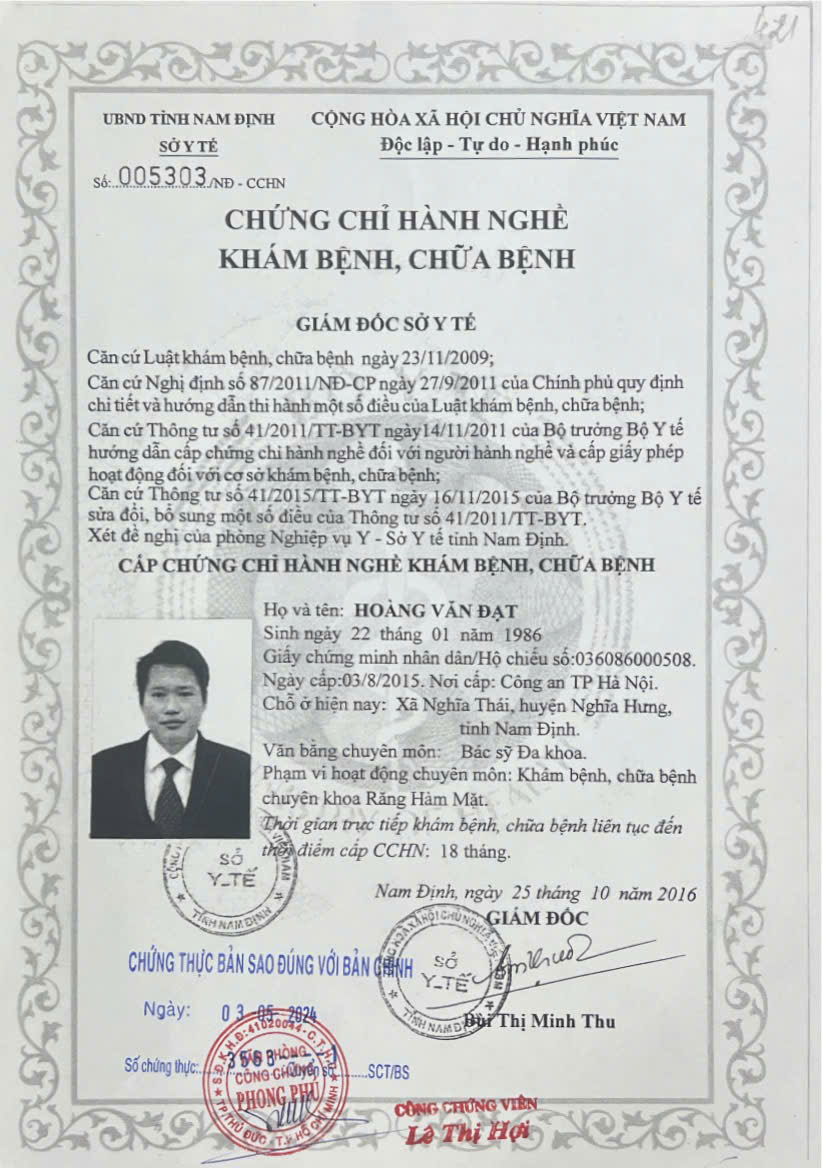 UBND TỈNH NAM ĐỊNH
SỞ Y TẾ
Số: 005303/NĐ - CCHN
CỘNG HÒA XÃ HỘI CHỦ NGHĨA VIỆT NAM
Độc lập - Tự do - Hạnh phúc
CHỨNG CHỈ HÀNH NGHỀ
KHÁM BỆNH, CHỮA BỆNH
GIÁM ĐỐC SỞ Y TẾ
Căn cứ Luật khám bệnh, chữa bệnh ngày 23/11/2009;
Căn cứ Nghị định số 87/2011/NĐ-CP ngày 27/9/2011 của Chính phủ quy định
chi tiết và hướng dẫn thi hành một số điều của Luật khám bệnh, chữa bệnh;
Căn cứ Thông tư số 41/2011/TT-BYT ngày14/11/2011 của Bộ trưởng Bộ Y tế
hướng dẫn cấp chứng chỉ hành nghề đối với người hành nghề và cấp giấy phép
hoạt động đối với cơ sở khám bệnh, chữa bệnh;
Căn cứ Thông tư số 41/2015/TT-BYT ngày 16/11/2015 của Bộ trưởng Bộ Y tế
sửa đổi, bổ sung một số điều của Thông tư số 41/2011/TT-BYT.
Xét đề nghị của phòng Nghiệp vụ Y - Sở Y tế tỉnh Nam Định.
CẤP CHỨNG CHỈ HÀNH NGHỀ KHÁM BỆNH, CHỮA BỆNH
Họ và tên: HOÀNG VĂN ĐẠT
Sinh ngày 22 tháng 01 năm 1986
Giấy chứng minh nhân dân/Hộ chiếu số:036086000508.
Ngày cấp:03/8/2015. Nơi cấp: Công an TP Hà Nội.
Chỗ ở hiện nay: Xã Nghĩa Thái, huyện Nghĩa Hưng,
tỉnh Nam Định.
Văn bằng chuyên môn: Bác sỹ Đa khoa.
Phạm vi hoạt động chuyên môn: Khám bệnh, chữa bệnh
chuyên khoa Răng Hàm Mặt.
Thời gian trực tiếp khám bệnh, chữa bệnh liên tục đến
thời điểm cấp CCHN: 18 tháng.
SỞ
Y_TẾ
TỈNH NAM ĐỊNH
Nam Định, ngày 25 tháng 10 năm 2016
GIÁM ĐỐC
SỞ
Y_TẾ
TỈNH NAM ĐỊNH
Bùi Thị Minh Thu
CHỨNG THỰC BẢN SAO ĐÚNG VỚI BẢN CHÍNH
Ngày: 03-05-2024
Số chứng thực: 3563 Quyển số 1 SCT/BS
S.Đ.K.H.Đ:41020044-C.T.H.D
VĂN PHÒNG
CÔNG CHỨNG
PHONG PHÚ
TP.THỦ ĐỨC - T.P HỒ CHÍ MINH
CÔNG CHỨNG VIÊN
Lê Thị Hợi